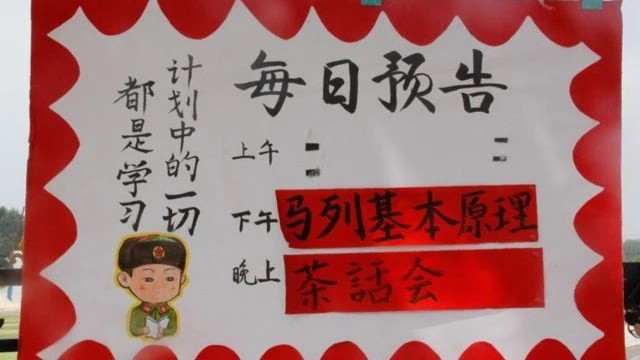 每日预告
计划中的一切
都是学习
上午
下午 马列基本原理
晚上 茶話会